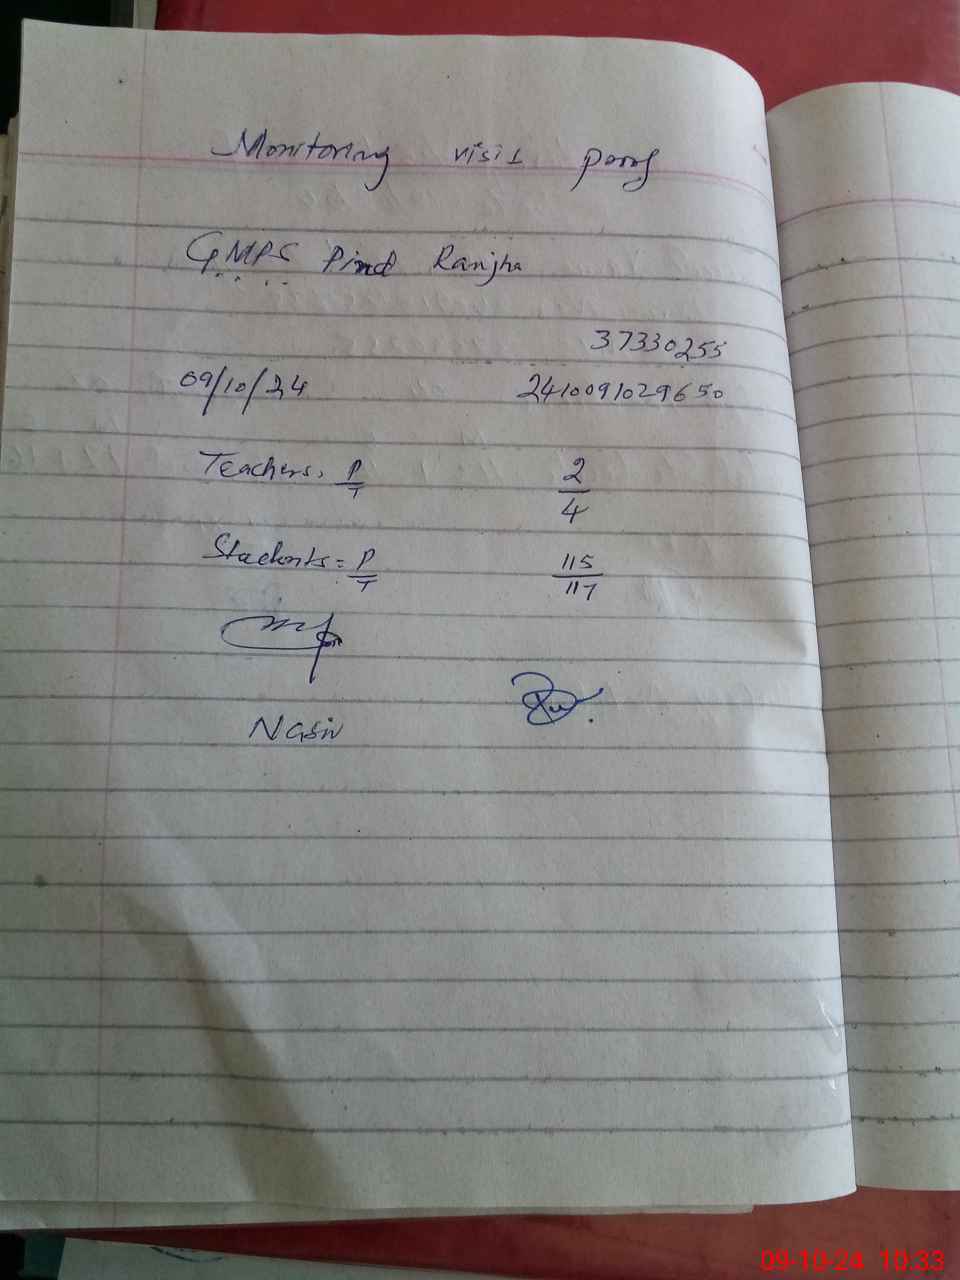 Monitoring visit proof
GMPS Pind Ranjha
37330255
09/10/24 2410091029650
Teachers. P/T 2/4
Students = P/T 115/117
Nasir
09-10-24 10:33